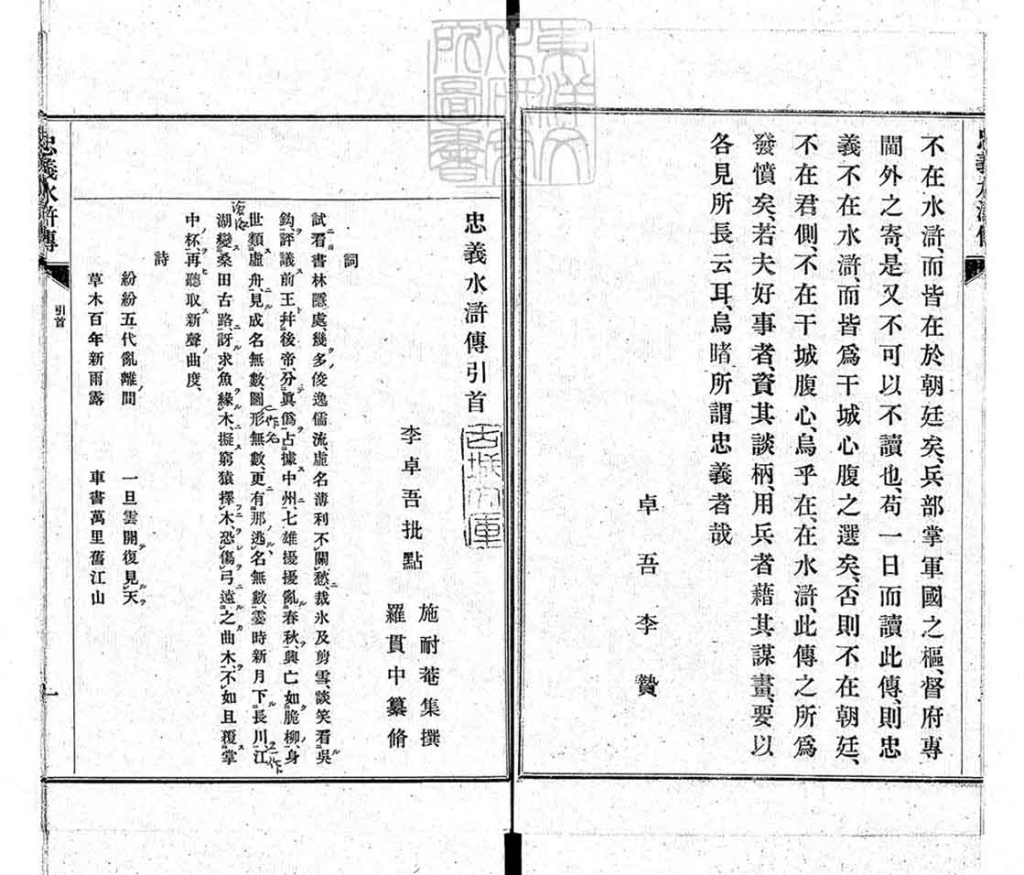 不在水滸、而皆在於朝廷矣、兵部掌軍國之樞、督府專
閫外之寄、是又不可以不讀也、苟一日而讀此傳、則忠
義不在水滸、而皆爲干城心腹之選矣、否則不在朝廷、
不在君側、不在干城腹心、烏乎在、在水滸、此傳之所爲
發憤矣、若夫好事者、資其談柄、用兵者藉其謀畫、要以
各見所長云耳、烏睹所謂忠義者哉
卓吾李贄
忠義水滸傳引首
李卓吾批點
施耐菴集撰
羅貫中纂脩
詞
試看書林隱處、幾多俊逸儒流、虛名薄利不關愁、裁氷及剪雪、談笑看吳
鈎、評議前王幷後帝、分眞僞占據中州、七雄擾擾亂春秋、興亡如脆柳、身
世類虛舟、見成名無數、圖形無數、更有那逃名無數、霎時新月下長川、江
湖變桑田古路、訝求魚緣木、擬窮猿擇木、恐傷弓遠之曲木、不如且覆掌
中杯、再聽取新聲曲度、
詩
紛紛五代亂離間 一旦雲開復見天
草木百年新雨露 車書萬里舊江山
忠義水滸傳
引首
一